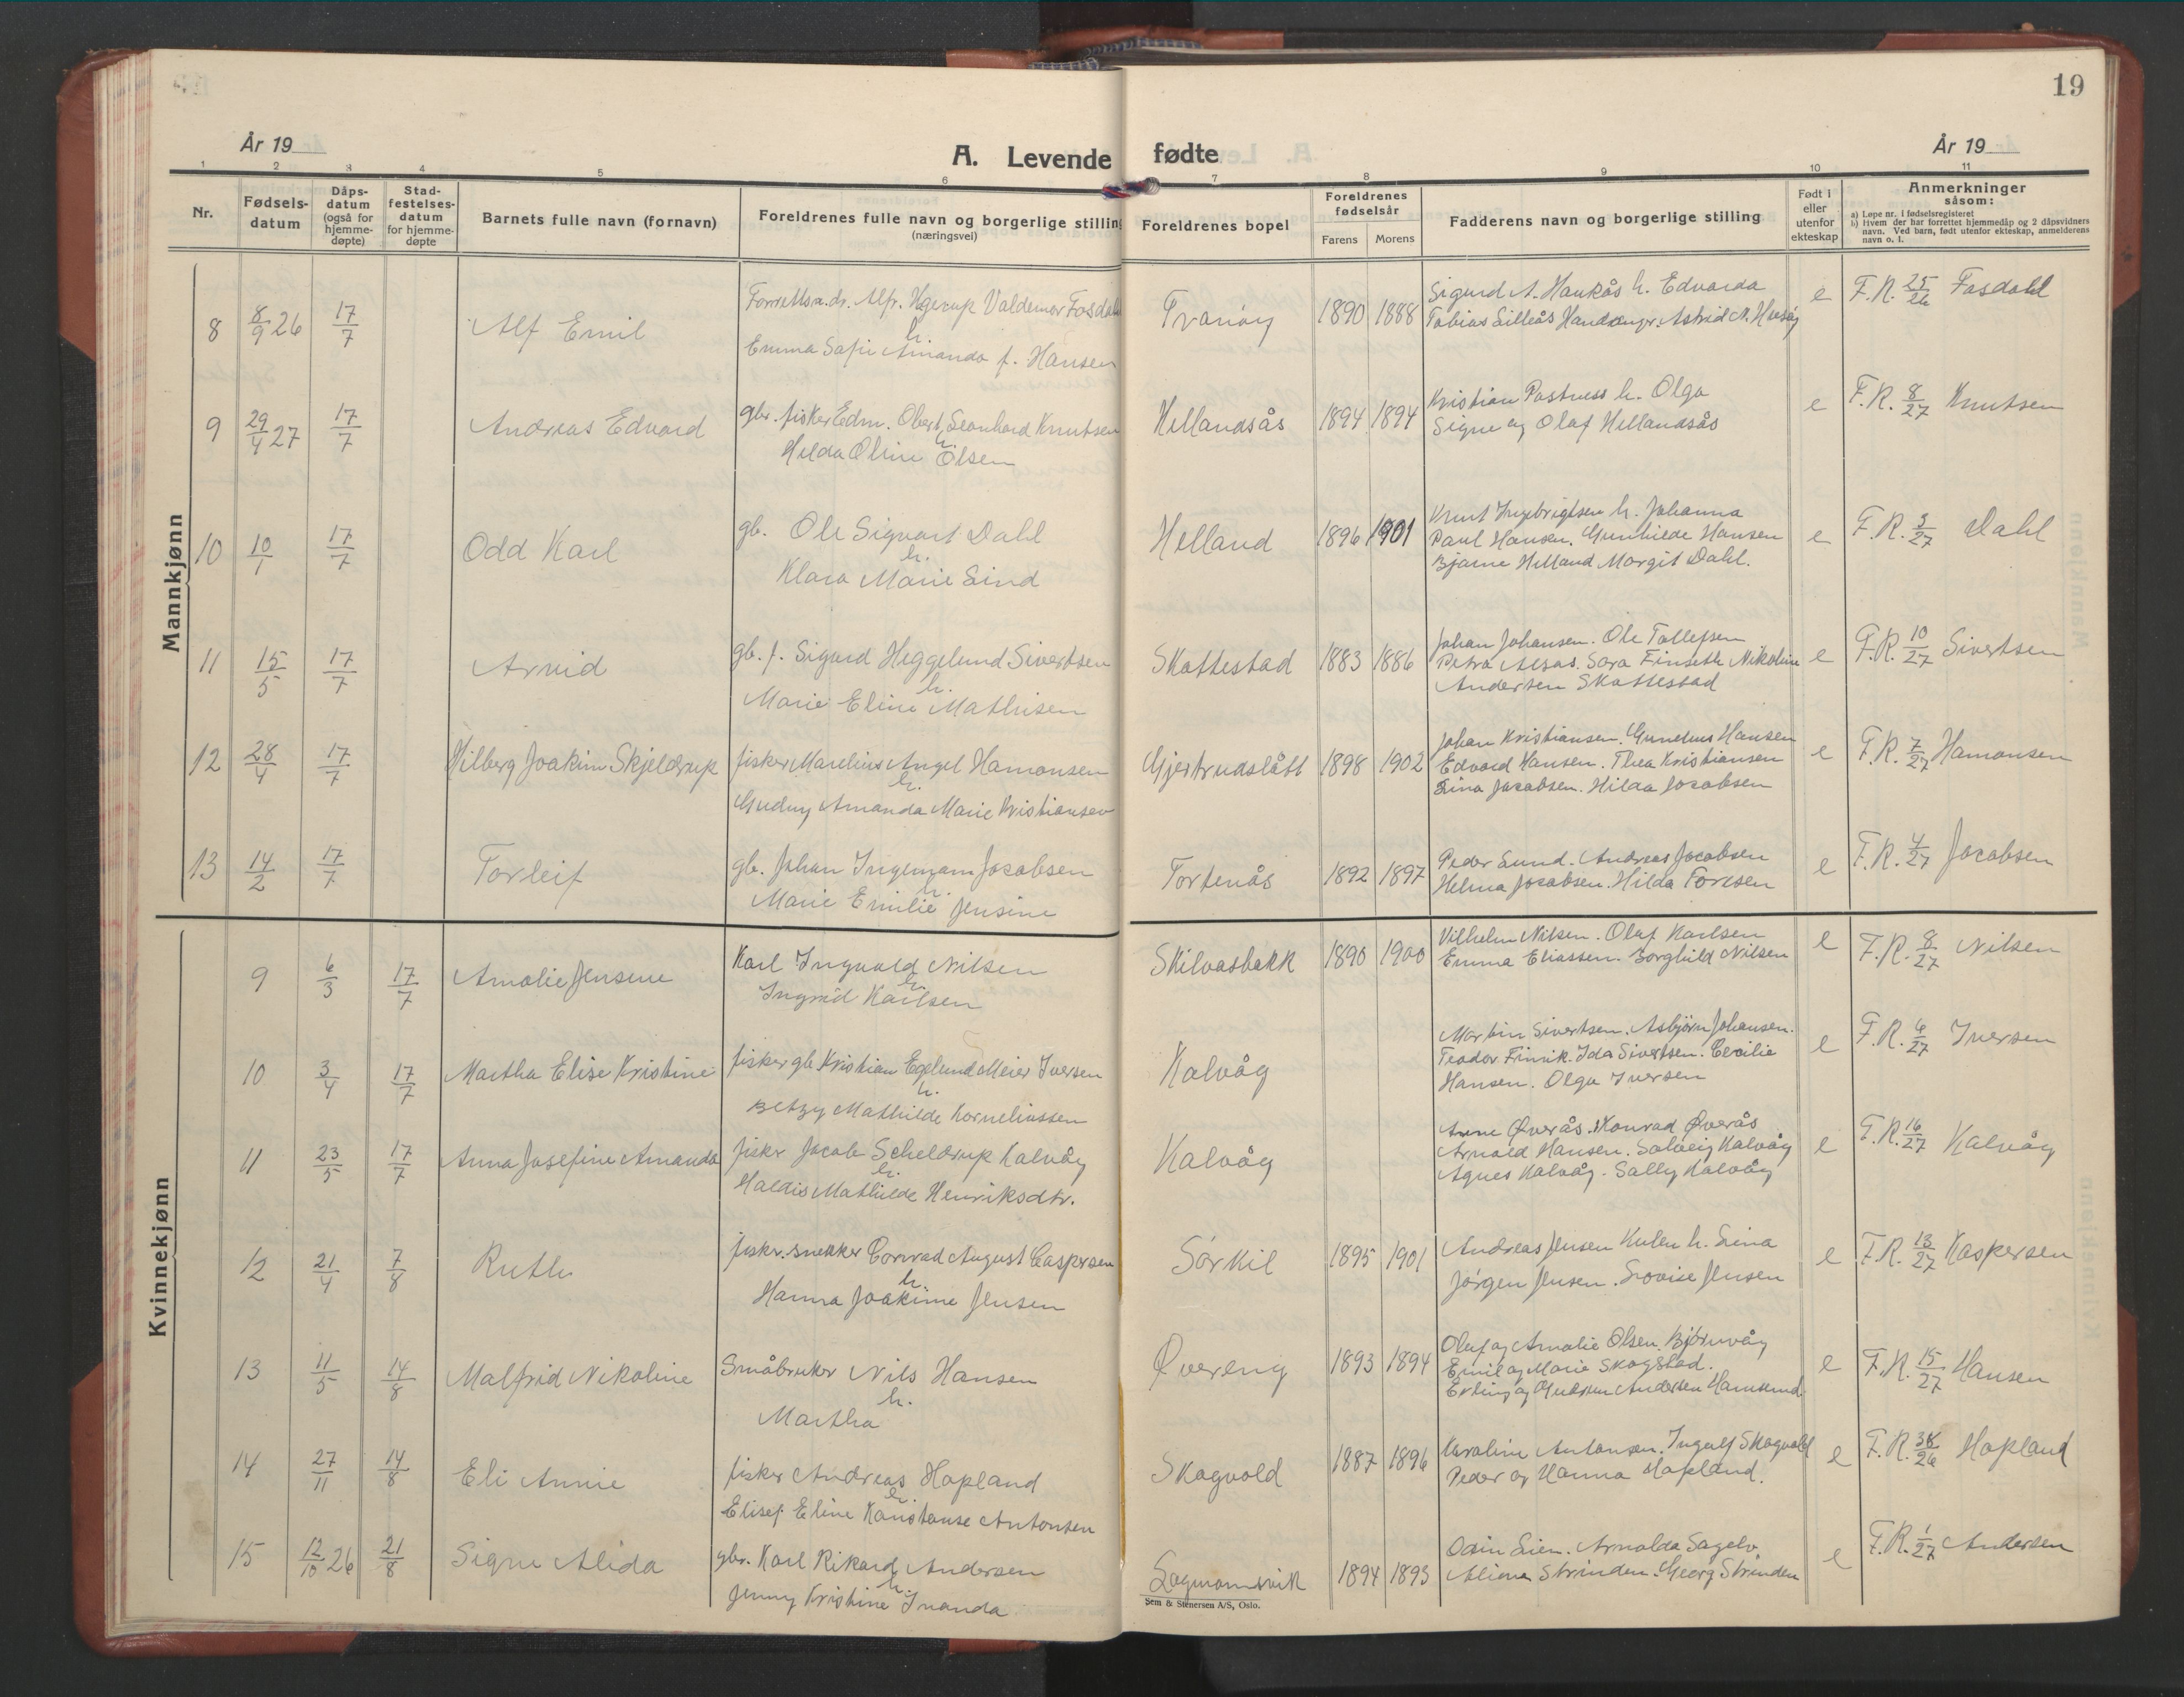 19
År 19
A. Levende fødte
År 19
1 2 3 4 5 6 7 8 9 10 11
Nr.
Fødsels-
datum
Dåps-
datum
(også for
hjemme-
døpte)
Stad-
festelses-
datum
for hjemme-
døpte
Barnets fulle navn (fornavn)
Foreldrenes fulle navn og borgerlige stilling
(næringsvei)
Foreldrenes bopel
Foreldrenes
fødselsår
Farens Morens
Fadderens navn og borgerlige stilling
Født i
eller
utenfor
ekteskap
Anmerkninger
såsom:
a) Løpe nr. i fødselsregisteret
b) Hvem der har forrettet hjemmedåp og 2 dåpsvidners
navn. Ved barn, født utenfor ekteskap, anmelderens
navn o. l.
Mannkjønn
8 8/9 26 17/7 Alf Emil
Alfr. Hgerup Valdemar Fosdahl
h.
Emma Sofie Amanda f. Hansen
Tranøy 1890 1888
Sigurd A. Haukås h. Edvarda
Tobias Lilleås Astrid N.
e F.R. 25/26 Fosdahl
9 29/4 27 17/7 Andreas Edvard
gbr. fisker Edm. Obert Leonhard Knutsen
h.
Hilda Oline Olsen
Hellandsås 1894 1894
Kristian h. Olga
Signe og Olaf Hellandsås
e F.R. 8/27 Knutsen
10 10/1 17/7 Odd Karl
gb. Ole Sigvart Dahl
h.
Klara Marie Lind
Helland 1896 1901
Knut Ingebrigtsen h. Johanna
Paul Hansen. Gunhilde Hansen
Bjarne Helland Margit Dahl.
e F.R. 3/27 Dahl
11 15/5 17/7 Arvid
gb. f. Sigurd Heggelund Sivertsen
h.
Marie Eline Mathisen
Skattestad 1883 1886
Johan Johansen. Ole Tollefsen
Petra Sara Finseth Nikoline
Andersen Skattestad
e F.R. 10/27 Sivertsen
12 28/4 17/7 Hilberg Joakim Skjeldrup
fisker Marelius Angel Hamonsen
h.
Gudny Amanda Marie Kristiansen
Gjertrudslått 1898 1902
Johan Kristiansen. Hansen
Edvard Hansen. Thea Kristiansen
Lina Jacobsen. Hilda Jacobsen
e F.R. 7/27 Hamonsen
13 14/2 17/7 Torleif
gb. Johan Ingemann Jacobsen
h.
Marie Emilie Jensine
Tortenås 1892 1897
Peder Lund. Andreas Jacobsen
Helma Jacobsen. Hilda
e F.R. 4/27 Jacobsen
Kvinnekjønn
9 6/3 17/7 Amalie Jensine
Karl Ingvald Nilsen
h.
Ingrid Karlsen
Skilvasbakk 1890 1900
Vilhelm Nilsen. Olaf Karlsen
Emma Eliassen. Borghild Nilsen
e F.R. 8/27 Nilsen
10 3/4 17/7 Martha Elise Kristine
fisker gb. Kristian Egelund Meier Iversen
h.
Betzy Mathilde Korneliussen
Kalvåg
Martin Sivertsen. Asbjørn Johansen.
Teodor Finvik. Ida Sivertsen. Cecilie
Hansen. Olga Iversen
e F.R. 6/27 Iversen
11 23/5 17/7 Anna Josefine Amanda
fisker Jacob Scheldrup Kalvåg
h.
Haldis Mathilde Henriksdtr.
Kalvåg
Arne Øverås. Konrad Øverås
Arnold Hansen. Solveig Kalvåg
Agnes Kalvåg. Sally Kalvåg
e F.R. 16/27 Kalvåg
12 21/4 7/8 Ruth
fisker. snekker Conrad August Caspersen
h.
Hanna Joakime Jensen
Sørkil 1895 1901
Andreas Jensen Kulen h. Lina
Jørgen Jensen. Lovise Jensen
e F.R. 13/27 Kaspersen
13 11/5 14/8 Malfrid Nikoline
Småbruker Nils Hansen
h.
Martha
Øvereng 1893 1894
Olaf og Amalie Olsen. Bjørnvåg
Emil og Marie Skogstad.
Erling og Andersen Hamsund.
e F.R. 15/27 Hansen
14 27/11 14/8 Eli Annie
fisker Andreas Hopland
h.
Elisef Eline Konstanse Antonsen
Skogvold 1887 1896
Karoline Antonsen. Ingulf Skogvold
Peder og Hanna Hopland.
e F.R. 38/26 Hopland
15 12/10 26 21/8 Signe Alida
gbr. Karl Rikard Andersen
h.
Jenny Kristine Iranda
Lagmannsvik 1894 1893
Odin Lien. Arnolda Sagelv
Strinden. Georg Strinden
e F.R. 1/27 Andersen
Sem & Stenersen A/S, Oslo.